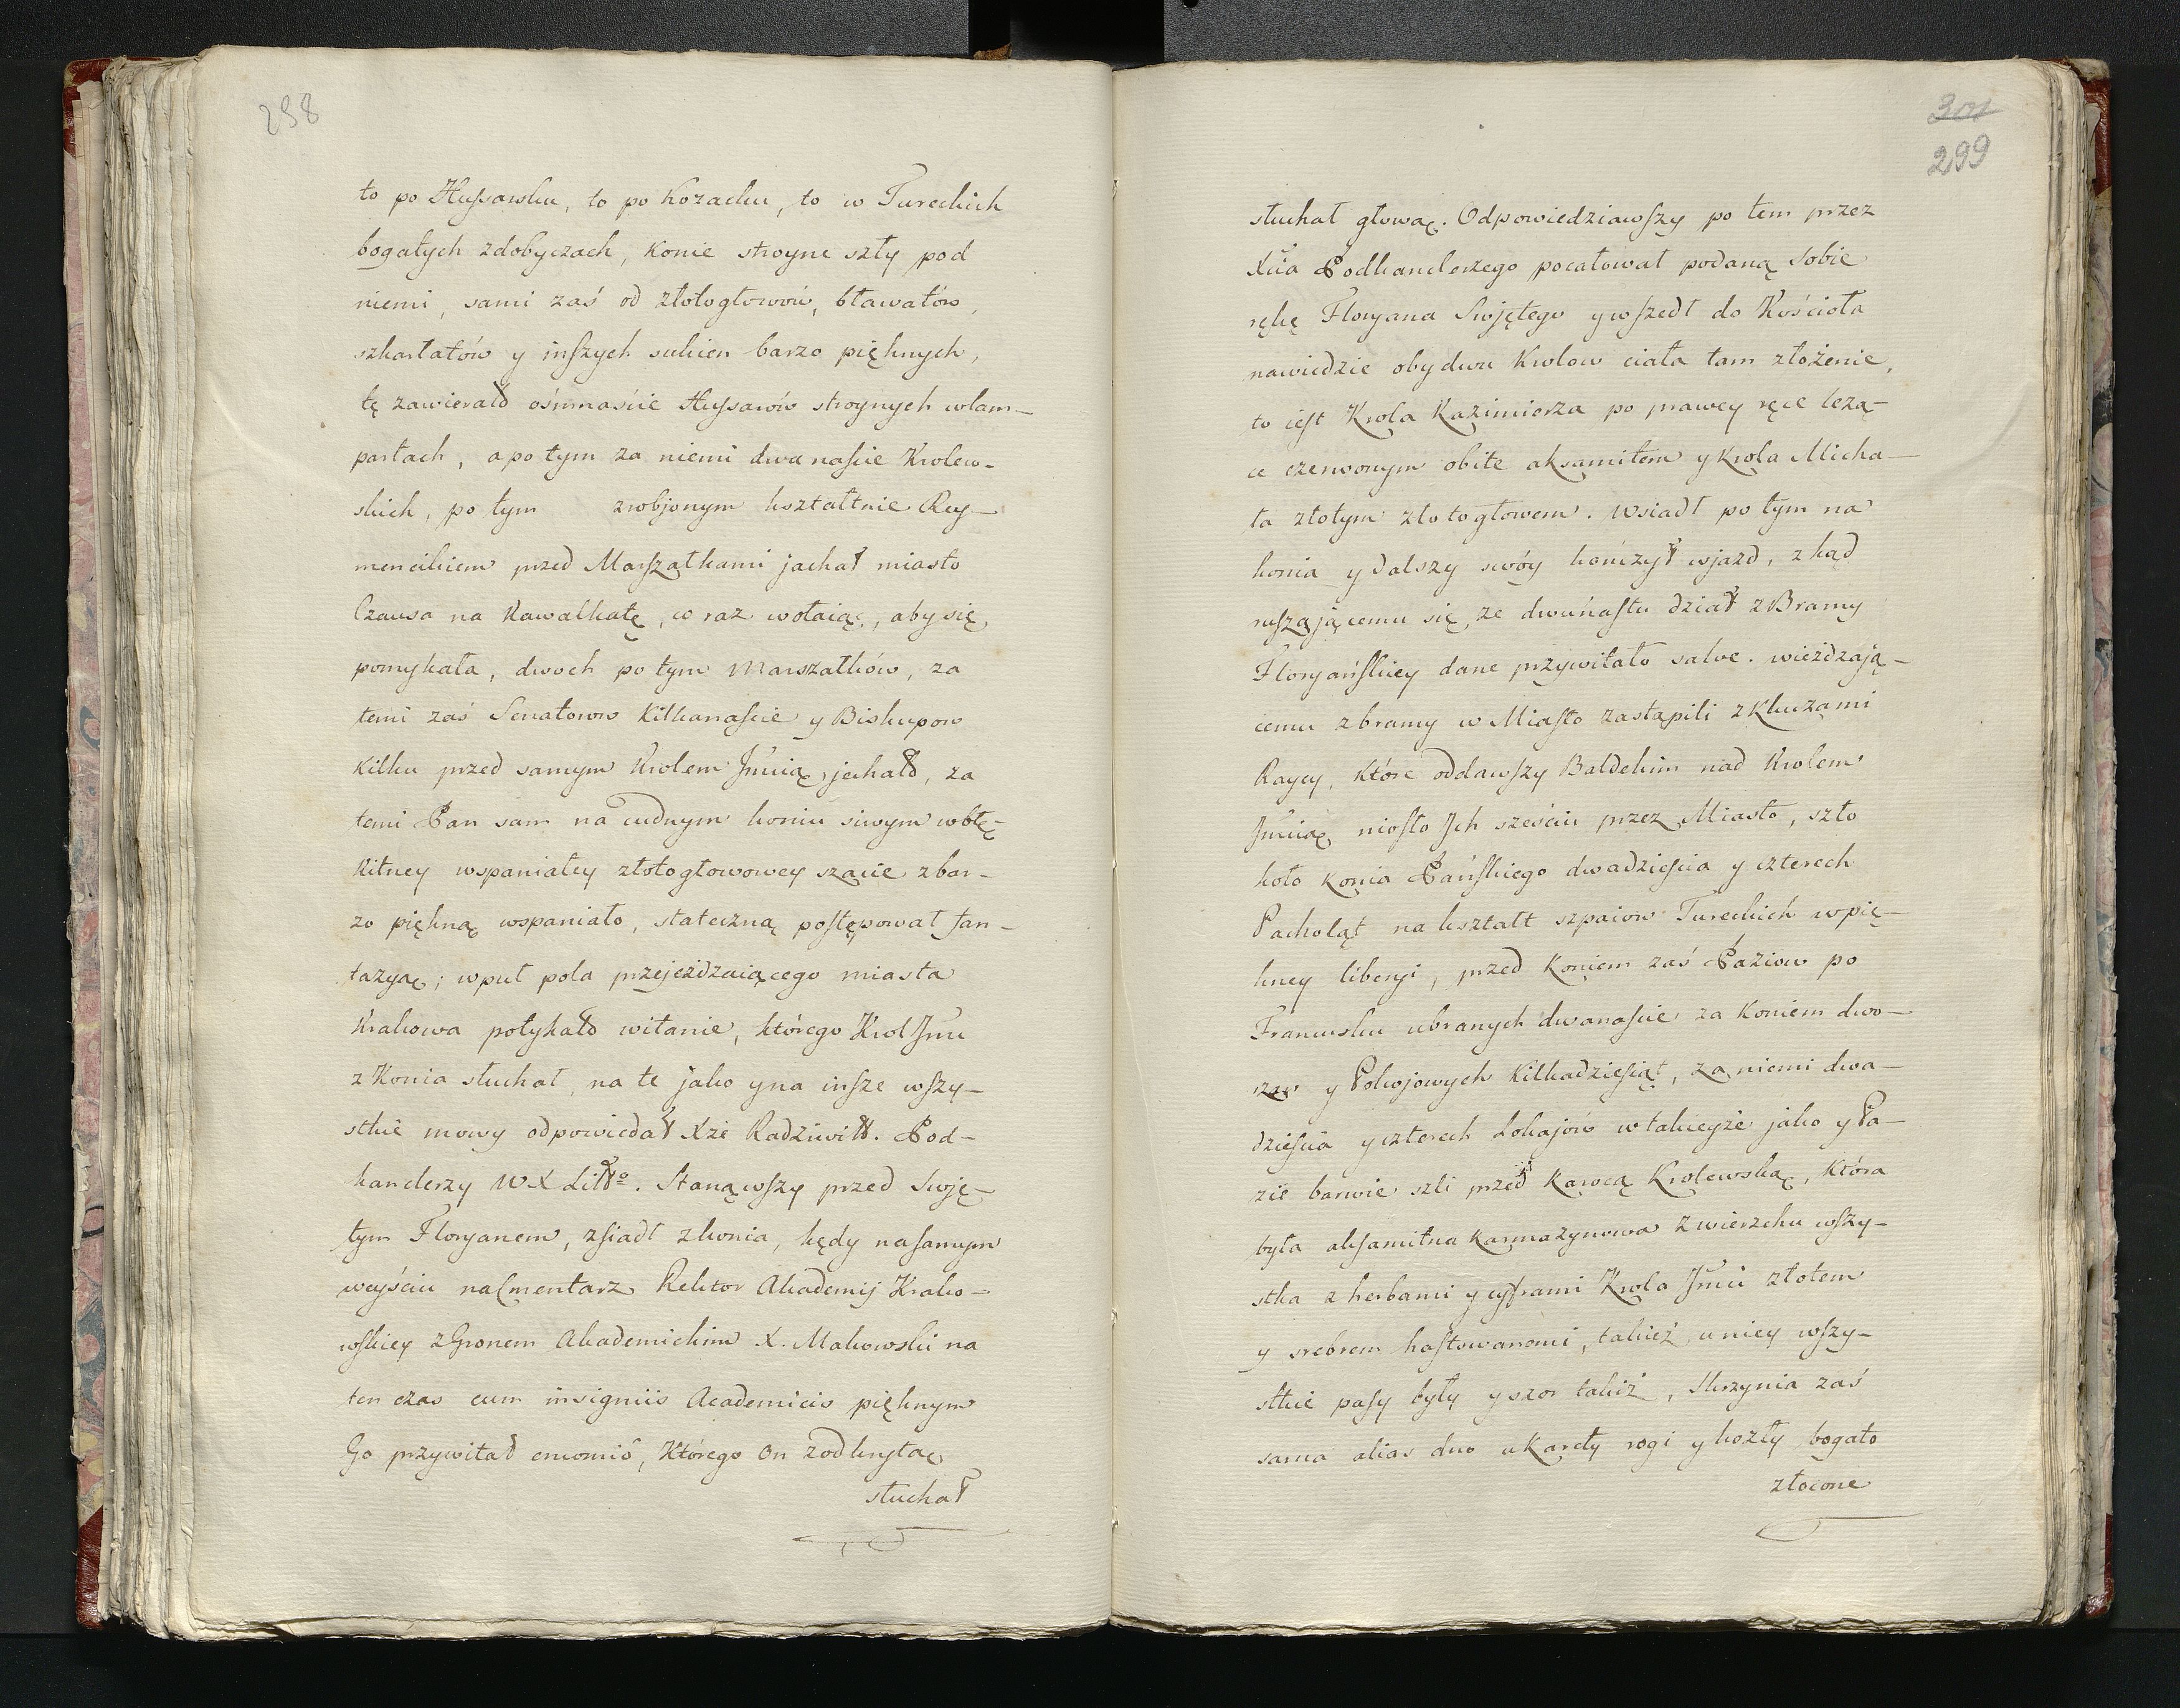 298
to po Hussarsku, to po Kozacku, to w Tureckich
bogatych zdobyczach, konie stroyne szły pod
niemi, sami zaś od złotogłowów, bławatów,
szkarłatów y inszych sukien barzo pięknych,
tę zawierało ośmnaście Hussarów stroynych w lam-
partach, a po tym za niemi dwanaście Krolew-
skich, po tym zrobjonym kształtnie Rey-
mencikiem przed Marszałkami jachał miasto
Czausa na Kawalkatę, w raz wołaiąc, aby się
pomykała, dwoch po tym Marszałków, za
temi zaś Senatorow Kilkanaście y Biskupow
kilku przed samym Krolem Jmcią jechało, za
temi Pan sam na cudnym koniu siwym w błę-
kitney wspaniałey złotogłowowey szacie z bar-
zo piękną wspaniało, stateczną postępował fan-
tazyą; w puł pola przejeżdzaiącego miasta
Krakowa potykało witanie, którego Krol Jmc
z Konia słuchał, na te jako y na insze wszy-
stkie mowy odpowiedał Xże Radziwiłł. Pod-
kanclerzy W X Litto. Stanąwszy przed Swję-
tym Floryanem, zsiadł z konia, kędy na samym
weyściu na Cmentarz Rektor Akademij Krako-
wskiey z Gronem Akademickim X. Makowski na
ten czas cum insigniis Academicis pięknym
Go przywitał encomio, Którego On z odkrytą
słuchał
301
299
słuchał głową. Odpowiedziawszy po tem przez
Xcia Podkanclerzego pocałował podaną sobie
rękę Floryana Swjętego y wszedł do Kościoła
nawiedzie obydwu Krolow ciała tam złożenie,
to iest Krola Kazimierza po prawey ręce leżą-
ce czerwonym obite aksamitem y Krola Micha-
ła złotym złotogłowem. wsiadł po tym na
konia y dalszy swóy kończył wjazd, z kąd
ruszającemu się, ze dwunastu dział z Bramy
Floryańskiey dane przywitało salve. wieżdzają-
cemu z bramy w Miasto zastąpili z Kluczami
Raycy, które oddawszy Baldekim nad Krolem
Jmcią niosło Jch sześciu przez Miasto, szło
koło konia Pańskiego dwadzieścia y czterech
Pacholąt na kształt szpaiow Tureckich w pię-
kney liberyi, przed koniem zaś Paziow po
Francusku ubranych dwanaście za koniem dwo-
rzan y Pokojowych Kilkadziesiąt, za niemi dwa-
dzieścia y czterech Lokajów w takieyże jako y Pa-
zie barwie szli przed Karocą Krolewską, która
była aksamitna karmazynowa z wierzchu wszy-
stka z herbami y cyframi Krola Jmci złotem
y srebrem haftowanemi, takież u niey wszy-
stkie pasy były y szor takiż, Skrzynia zaś
sama alias dno u Karety rogi y kozły bogato
złocone